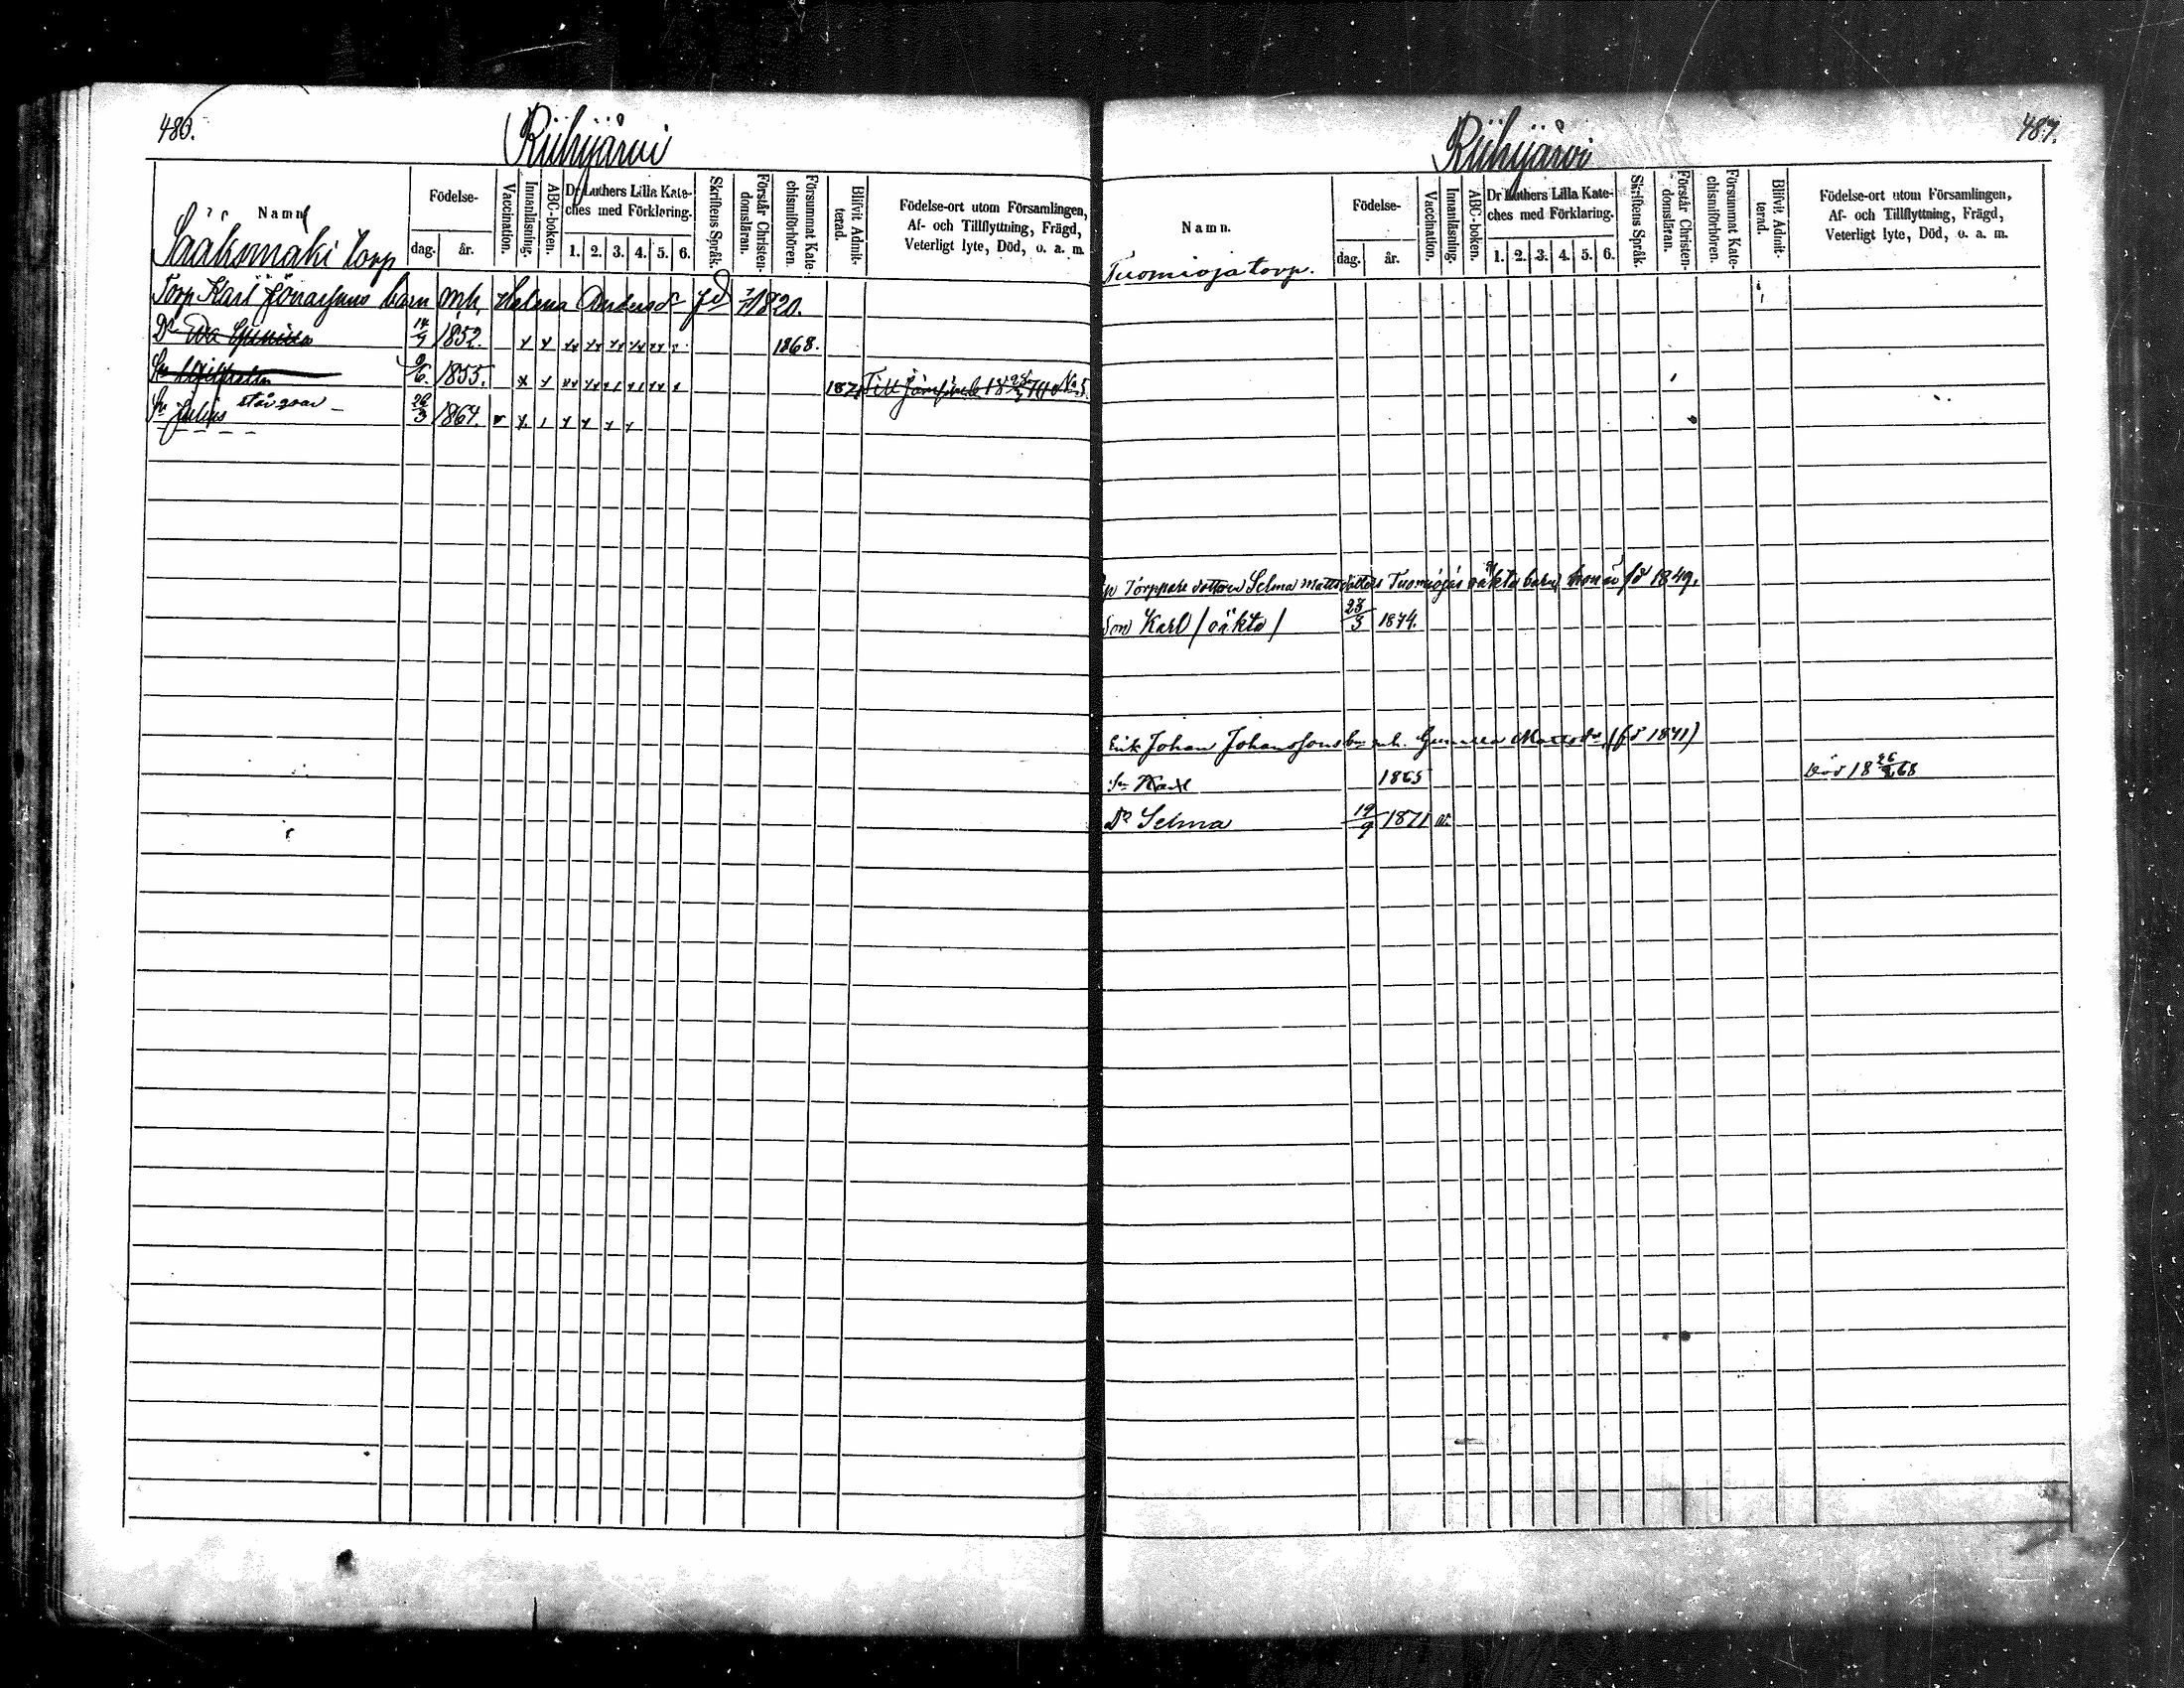 486.
Riihijärvi
Namn.
Födelse-
dag.
år.
Vaccination.
Innanläsning.
ABC-boken.
Dr Luthers Lilla Kate-
ches med Förklaring.
1. 2. 3. 4. 5. 6.
Skriftens Språk.
Förstår Christen-
domsläran.
Försummat Kate-
chismiförhören.
Blifvit Admit-
terad.
Födelse-ort utom Församlingen,
Af- och Tillflyttning, Frägd,
Veterligt lyte, Död, o. a. m.
Sääksmäki torp
Torp. Karl Jönassons barn m.h. Helena Andersdr fd 1820.
Dr Eda 14/9 1852. 1868.
Sn Wilhelm 9/6. 1855. Till
Sn Julius 26/3 1864.
487.
Riihijärvi
Namn.
Födelse-
dag.
år.
Vaccination.
Innanläsning.
ABC-boken.
Dr Luthers Lilla Kate-
ches med Förklaring.
1. 2. 3. 4. 5. 6.
Skriftens Språk.
Förstår Christen-
domsläran.
Försummat Kate-
chismiförhören.
Blifvit Admit-
terad.
Födelse-ort utom Församlingen,
Af- och Tillflyttning, Frägd,
Veterligt lyte, Död, o. a. m.
Tuomioja torp.
Torppare dottren Selma Mattsdotters Tuomiojas oäkta barn, hon är fd 1849.
Son Karl / oäkta / 23/3 1874.
Erik Johan Johanssons bn m.h. Gunilla Mattsdr (fd 1841)
Sn Karl 1865 Död 18 26/9 68
Dr Selma 19/9 1871 v.